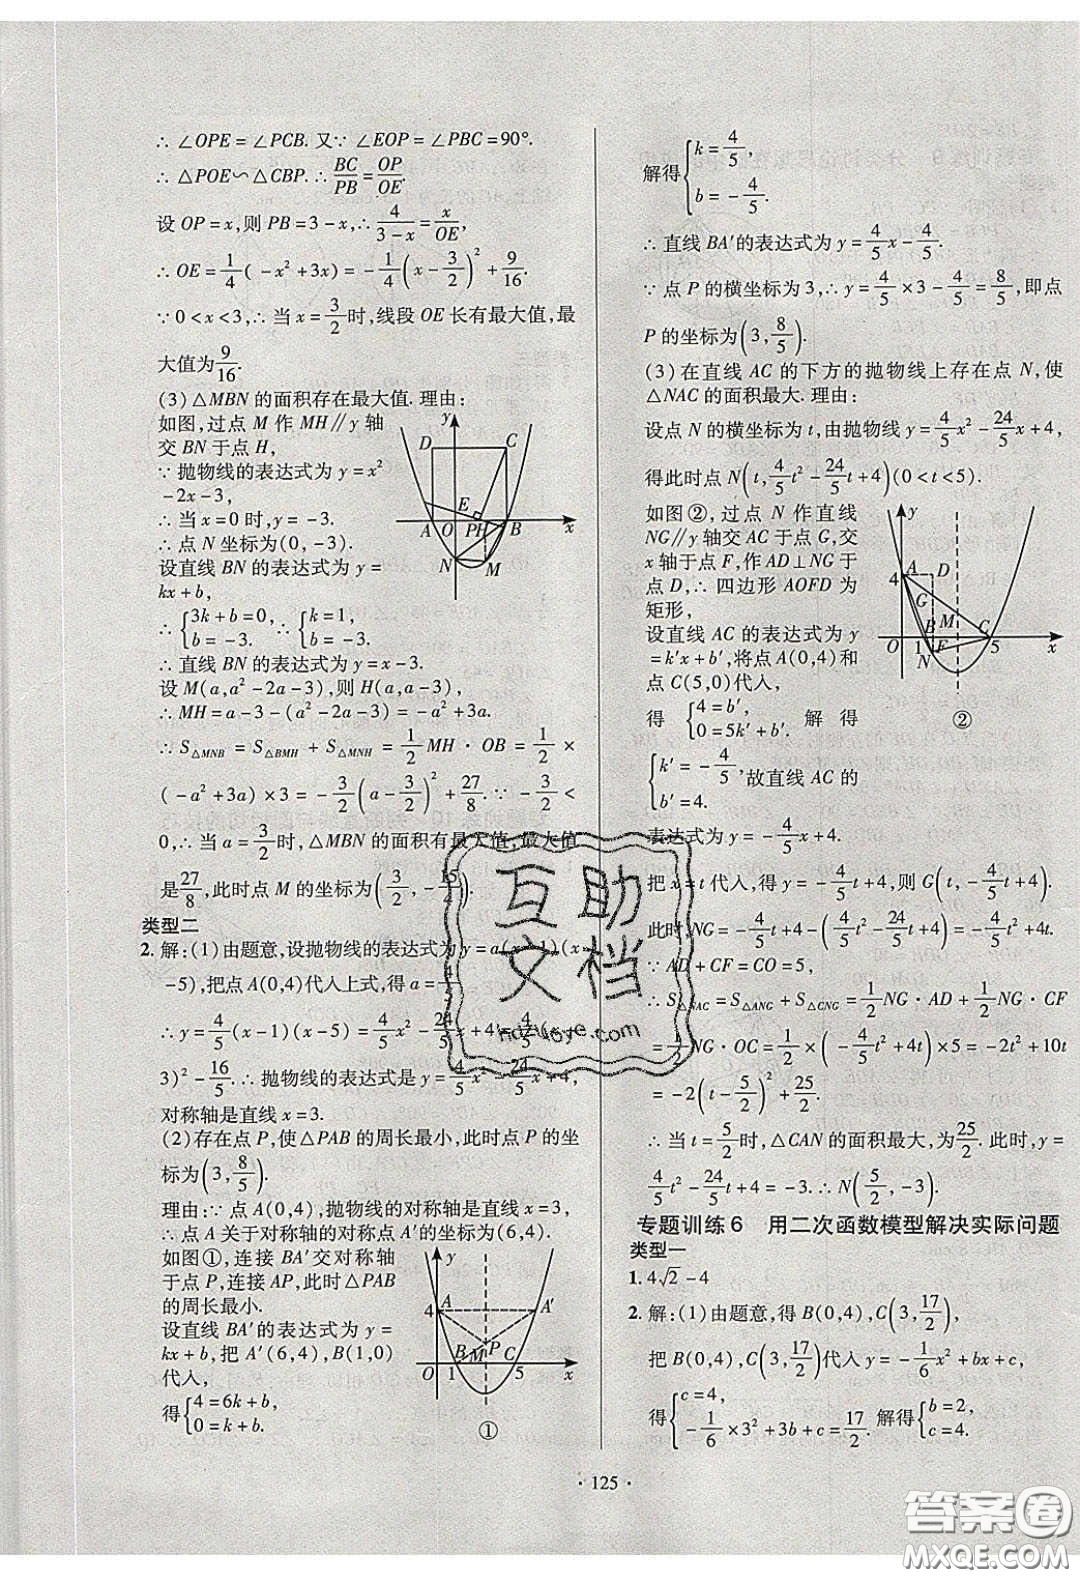 ∴ ∠OPE = ∠PCB. 又∵ ∠EOP = ∠PBC = 90°.
∴ △POE∽△CBP. ∴ BC/PB = OP/OE.
设 OP = x,则 PB = 3 - x,∴ 4/(3-x) = x/OE,
∴ OE = 1/4(-x² + 3x) = -1/4(x - 3/2)² + 9/16.
∵ 0 < x < 3,∴ 当 x = 3/2 时,线段 OE 长有最大值,最
大值为 9/16.
(3) △MBN 的面积存在最大值. 理由:
如图,过点 M 作 MH∥y 轴
交 BN 于点 H,
∵ 抛物线的表达式为 y = x²
- 2x - 3,
∴ 当 x = 0 时,y = -3.
∴ 点 N 坐标为(0, -3).
设直线 BN 的表达式为 y =
kx + b,
∴ {3k + b = 0, b = -3. ∴ {k = 1, b = -3.
∴ 直线 BN 的表达式为 y = x - 3.
设 M(a,a² - 2a - 3),则 H(a,a - 3),
∴ MH = a - 3 - (a² - 2a - 3) = -a² + 3a.
∴ S△MNB = S△BMH + S△MNH = 1/2 MH · OB = 1/2 ×
(-a² + 3a) × 3 = -3/2(a - 3/2)² + 27/8. ∵ -3/2 <
0,∴ 当 a = 3/2 时,△MBN 的面积有最大值,最大值
是 27/8,此时点 M 的坐标为(3/2, -15/4).
y D C E A O P H B x N M
类型二
2. 解:(1)由题意,设抛物线的表达式为 y = a(x - 1)(x
- 5),把点 A(0,4)代入上式,得 a = 4/5,
∴ y = 4/5(x - 1)(x - 5) = 4/5x² - 24/5x + 4 = 4/5(x -
3)² - 16/5. ∴ 抛物线的表达式是 y = 4/5x² - 24/5x + 4,
对称轴是直线 x = 3.
(2)存在点 P,使△PAB 的周长最小,此时点 P 的坐
标为(3, 8/5).
理由:∵ 点 A(0,4),抛物线的对称轴是直线 x = 3,
∴ 点 A 关于对称轴的对称点 A′的坐标为(6,4).
如图①,连接 BA′交对称轴
于点 P,连接 AP,此时△PAB
的周长最小.
设直线 BA′的表达式为 y =
kx + b,把 A′(6,4),B(1,0)
代入,
得{4 = 6k + b, 0 = k + b.
y 4 A A′ P B M C O 1 5 x
①
解得{k = 4/5, b = -4/5.
∴ 直线 BA′的表达式为 y = 4/5x - 4/5.
∵ 点 P 的横坐标为 3,∴ y = 4/5 × 3 - 4/5 = 8/5,即点
P 的坐标为(3, 8/5).
(3)在直线 AC 的下方的抛物线上存在点 N,使
△NAC 的面积最大. 理由:
设点 N 的横坐标为 t,由抛物线 y = 4/5x² - 24/5x + 4,
得此时点 N(t, 4/5t² - 24/5t + 4)(0 < t < 5).
如图②,过点 N 作直线
NG∥y 轴交 AC 于点 G,交
x 轴于点 F,作 AD⊥NG 于
点 D,∴ 四边形 AOFD 为
矩形,
设直线 AC 的表达式为 y
= k′x + b′,将点 A(0,4)和
点 C(5,0)代入,
得 {4 = b′, 0 = 5k′ + b′, 解 得
{k′ = -4/5, b′ = 4. ,故直线 AC 的
表达式为 y = -4/5x + 4.
y A D 4 G M B C O 1 F 5 x N
②
把 x = t 代入,得 y = -4/5t + 4,则 G(t, -4/5t + 4).
此时,NG = -4/5t + 4 - (4/5t² - 24/5t + 4) = -4/5t² + 4t.
∵ AD + CF = CO = 5,
∴ S△NAC = S△ANG + S△CNG = 1/2 NG · AD + 1/2 NG · CF
= 1/2 NG · OC = 1/2 × (-4/5t² + 4t) × 5 = -2t² + 10t
= -2(t - 5/2)² + 25/2.
∴ 当 t = 5/2 时,△CAN 的面积最大,为 25/2. 此时,y =
4/5t² - 24/5t + 4 = -3. ∴ N(5/2, -3).
专题训练 6 用二次函数模型解决实际问题
类型一
1. 4√2 - 4
2. 解:(1)由题意,得 B(0,4),C(3, 17/2),
把 B(0,4),C(3, 17/2)代入 y = -1/6x² + bx + c,
得{c = 4, -1/6 × 3² + 3b + c = 17/2. 解得{b = 2, c = 4.
· 125 ·
互助
文档
hdzuoye.com
答案圈
MXQE.COM